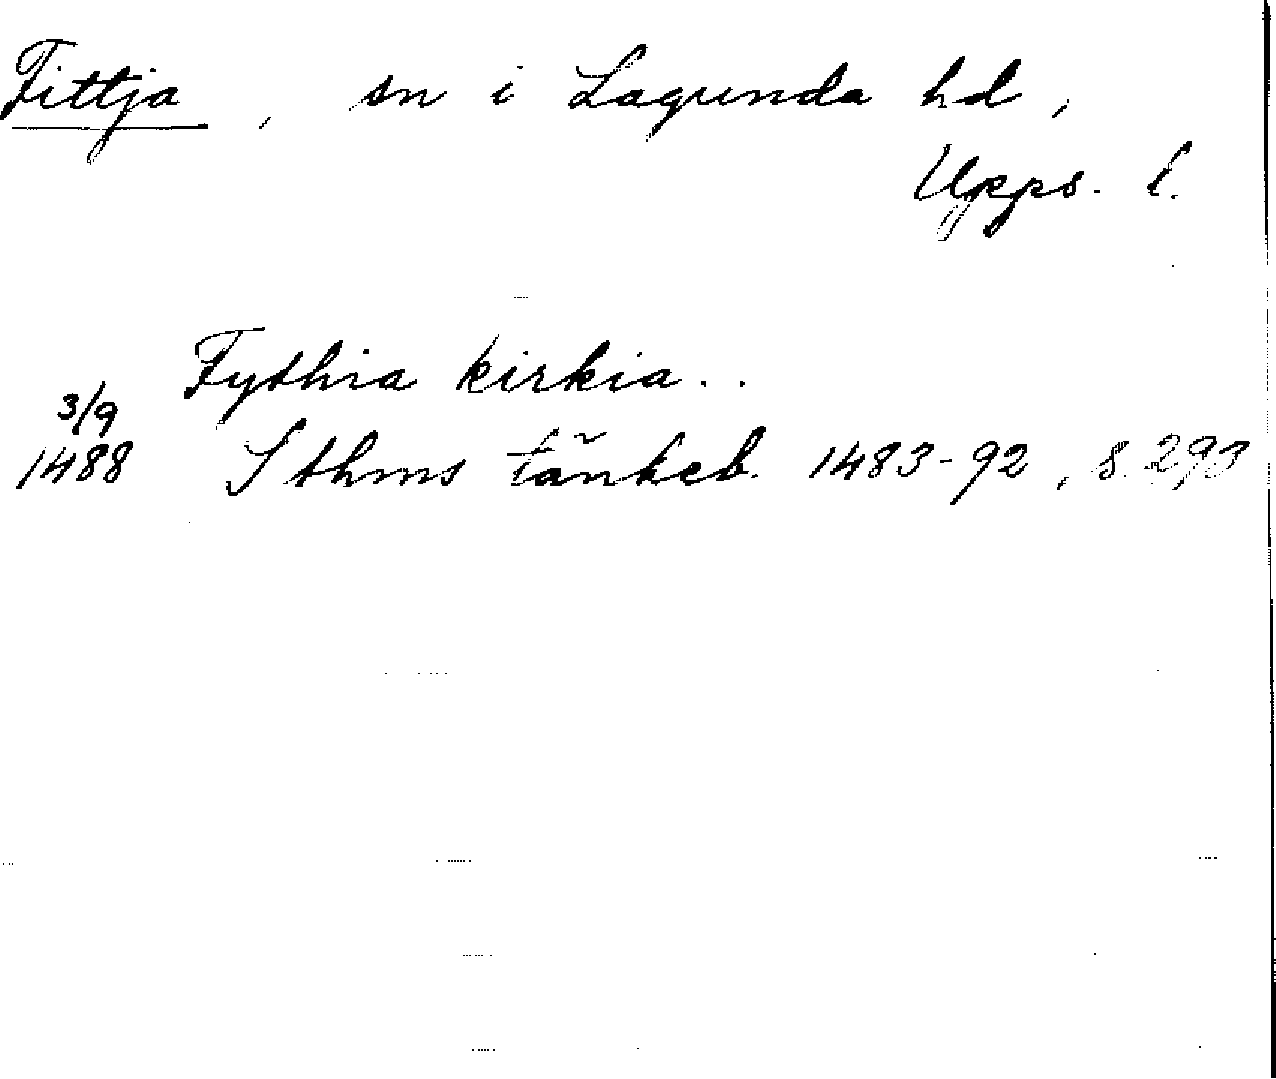 Fittja, sn i Lagunda hd,
Upps. l.
Fythia kirkia..
3/9
1488 Sthms tänkeb. 1483-92, s. 293